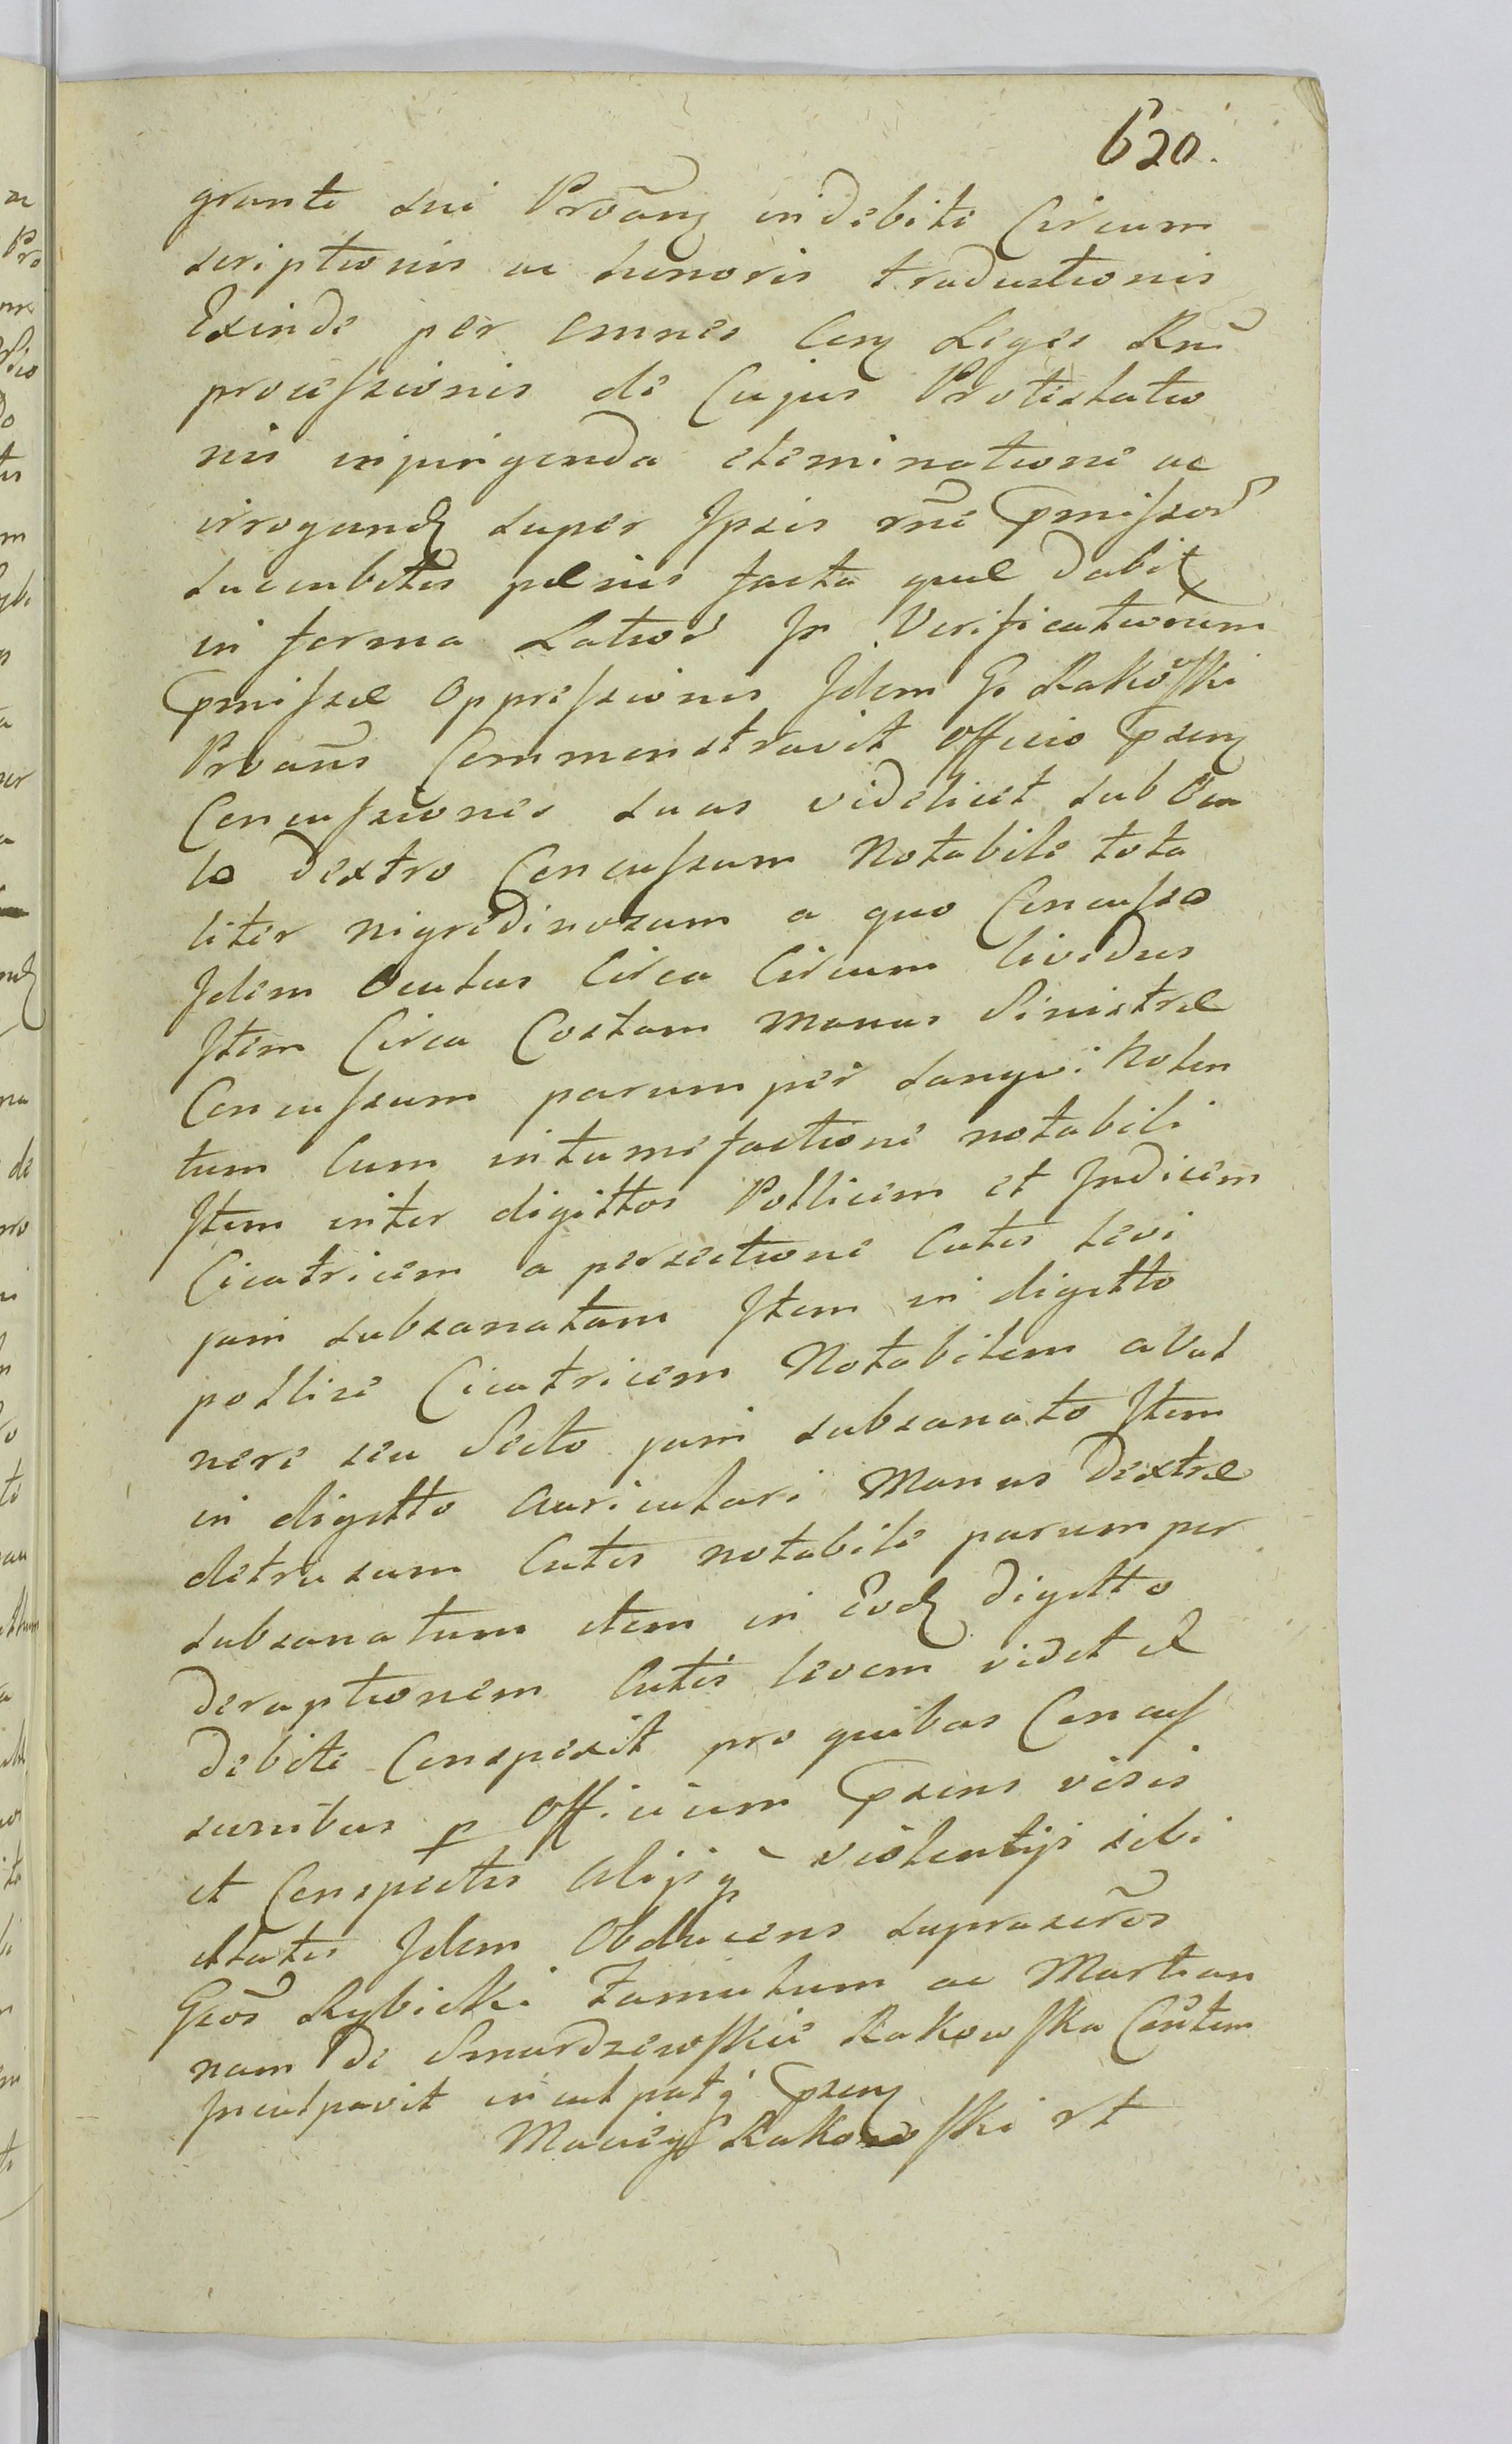 620.
grante sui Proãnz indebite Circum
scriptionis ac honoris traductionis
Exinde per omnes Conz Leges Rnĩ
processionis de Cujus Protestatio
nis injungenda eleminatione ac
irrogand super Ipsis rñe pmissor
succubitis pœnis facta quæ dabit
in forma Latior In Verificationem
pmissæ Oppressionis Idem G. Rakowski
Proãns Commonstravit Officio psenz
Concussiones suas videlicet sub Ocu
lo dextro Concussum Notabile tota
liter nigredinosum a quo Concusso
Idem Oculus Circa Circum lividus
Item Circa Costam manus Sinistræ
Concussum parumper sangvi: nolen
tum Cum intumefactione notabili
Item inter digittos Pollicem et Indicem
Cicatricem a persectione Cutis levi
jam subsanatam Item in digitto
pollice Cicatricem Notabilem a Vul
nere seu Secto jam subsanato Item
in digitto Auriculari Manus Dextræ
detrusum Cutis notabile parumper
subsanatum item in Eod digitto
deraptionem Cutis levem vidit et
debite Conspexit pro quibus Concus
sionibus p Officium psens visis
et Conspectis Alijsq violentijs sibi
illatis Idem Obducens suprascrõs
Gros Rybicki Famulum ac Martian
nam de Smardzewskie Rakowska Coñtem
Inculpavit inculpatq psenz
Maciey Rakowski rt